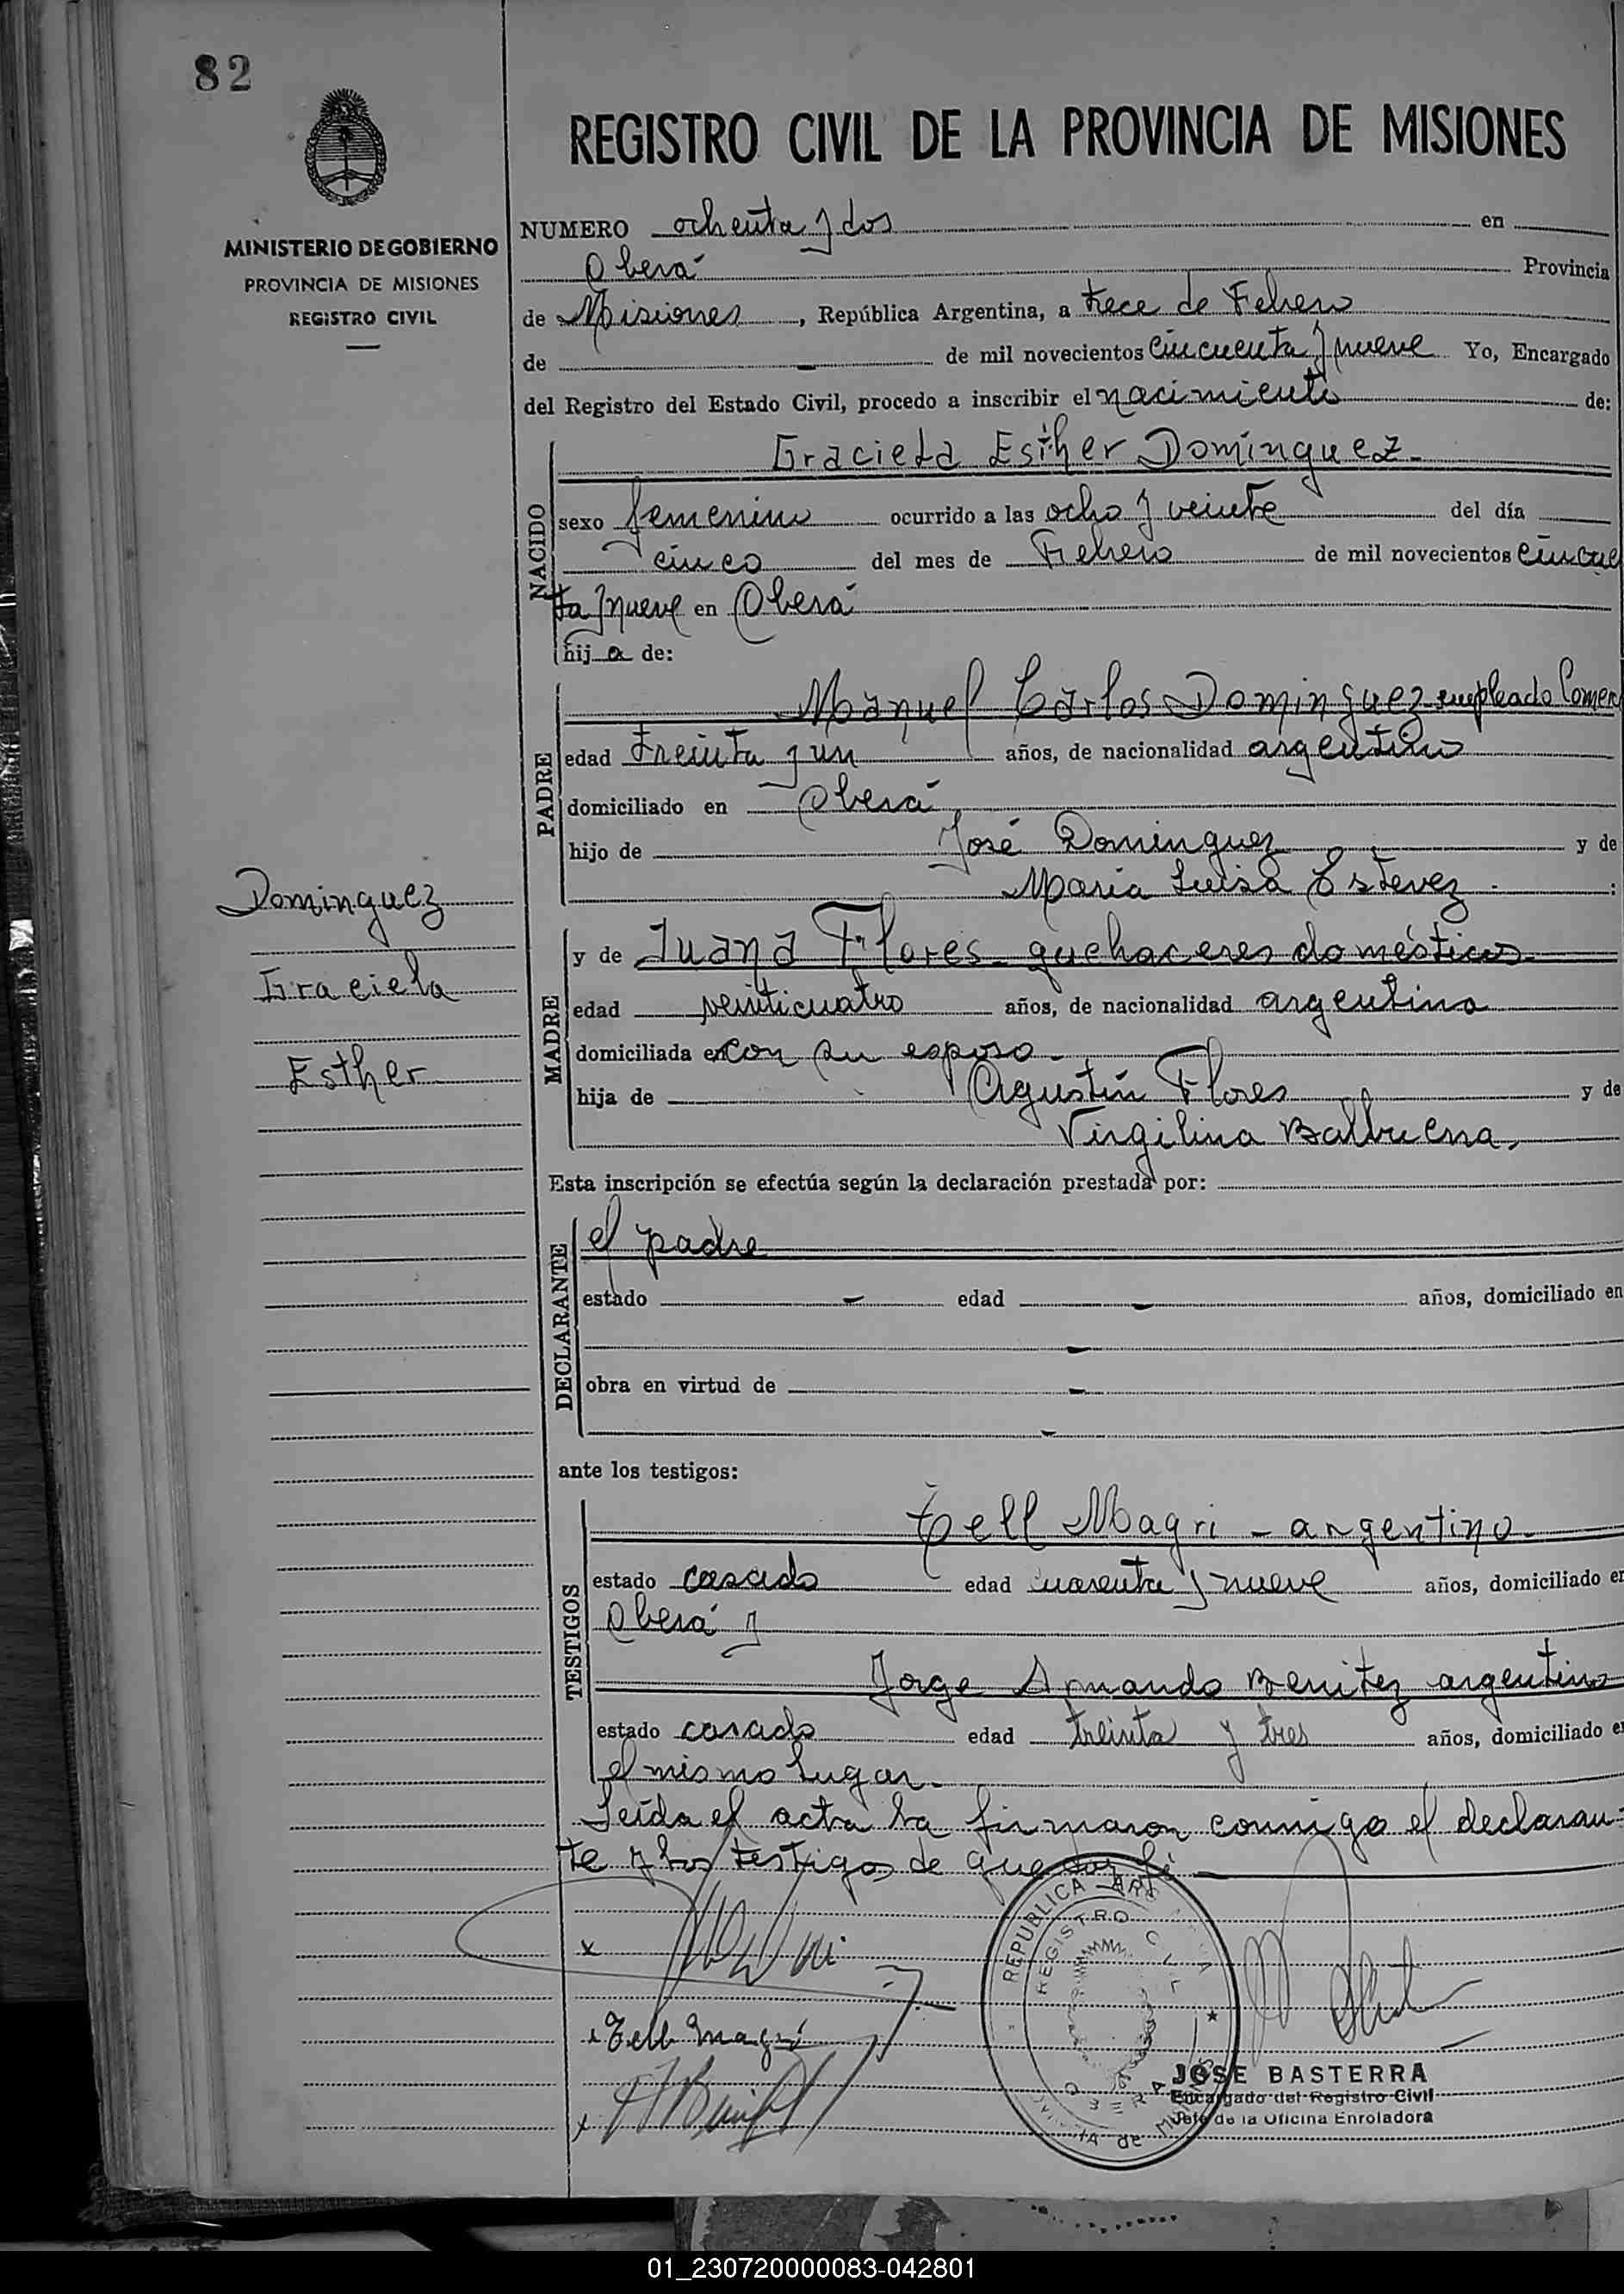 82
MINISTERIO DE GOBIERNO
PROVINCIA DE MISIONES
REGISTRO CIVIL
REGISTRO CIVIL DE LA PROVINCIA DE MISIONES
NUMERO ochenta y dos en
Oberá Provincia
de Misiones, República Argentina, a trece de Febrero
de - de mil novecientos cincuenta y nueve Yo, Encargado
del Registro del Estado Civil, procedo a inscribir el nacimiento de:
NACIDO
Graciela Esther Dominguez
sexo femenino ocurrido a las ocho y veinte del día
cinco del mes de Febrero de mil novecientos cincue
ta y nueve en Oberá
hija de:
PADRE
Manuel Carlos Dominguez empleado Comer
edad treinta y un años, de nacionalidad argentino
domiciliado en Oberá
hijo de José Dominguez y de
María Luisa Estevez :
Dominguez
Graciela
Esther
MADRE
y de Juana Flores - quehaceres domésticos
edad veinticuatro años, de nacionalidad argentina
domiciliada en con su esposo -
hija de Agustín Flores y de
Virgilina Balbuena.
Esta inscripción se efectúa según la declaración prestada por:
DECLARANTE
el padre
estado - edad - años, domiciliado en
-
obra en virtud de -
-
ante los testigos:
TESTIGOS
Tell Magri - argentino
estado casado edad cuarenta y nueve años, domiciliado en
Oberá y
Jorge Armando Benitez argentino
estado casado edad treinta y tres años, domiciliado e
el mismo lugar -
Leída el acta la firmaron conmigo el declaran-
te y los testigos de que doy fé
x
x Tell Magri
x
REPUBLICA ARGENTINA
REGISTRO CIVIL
OBERA
JOSE BASTERRA
Encargado del Registro Civil
Jefe de la Oficina Enroladora
01_230720000083-042801